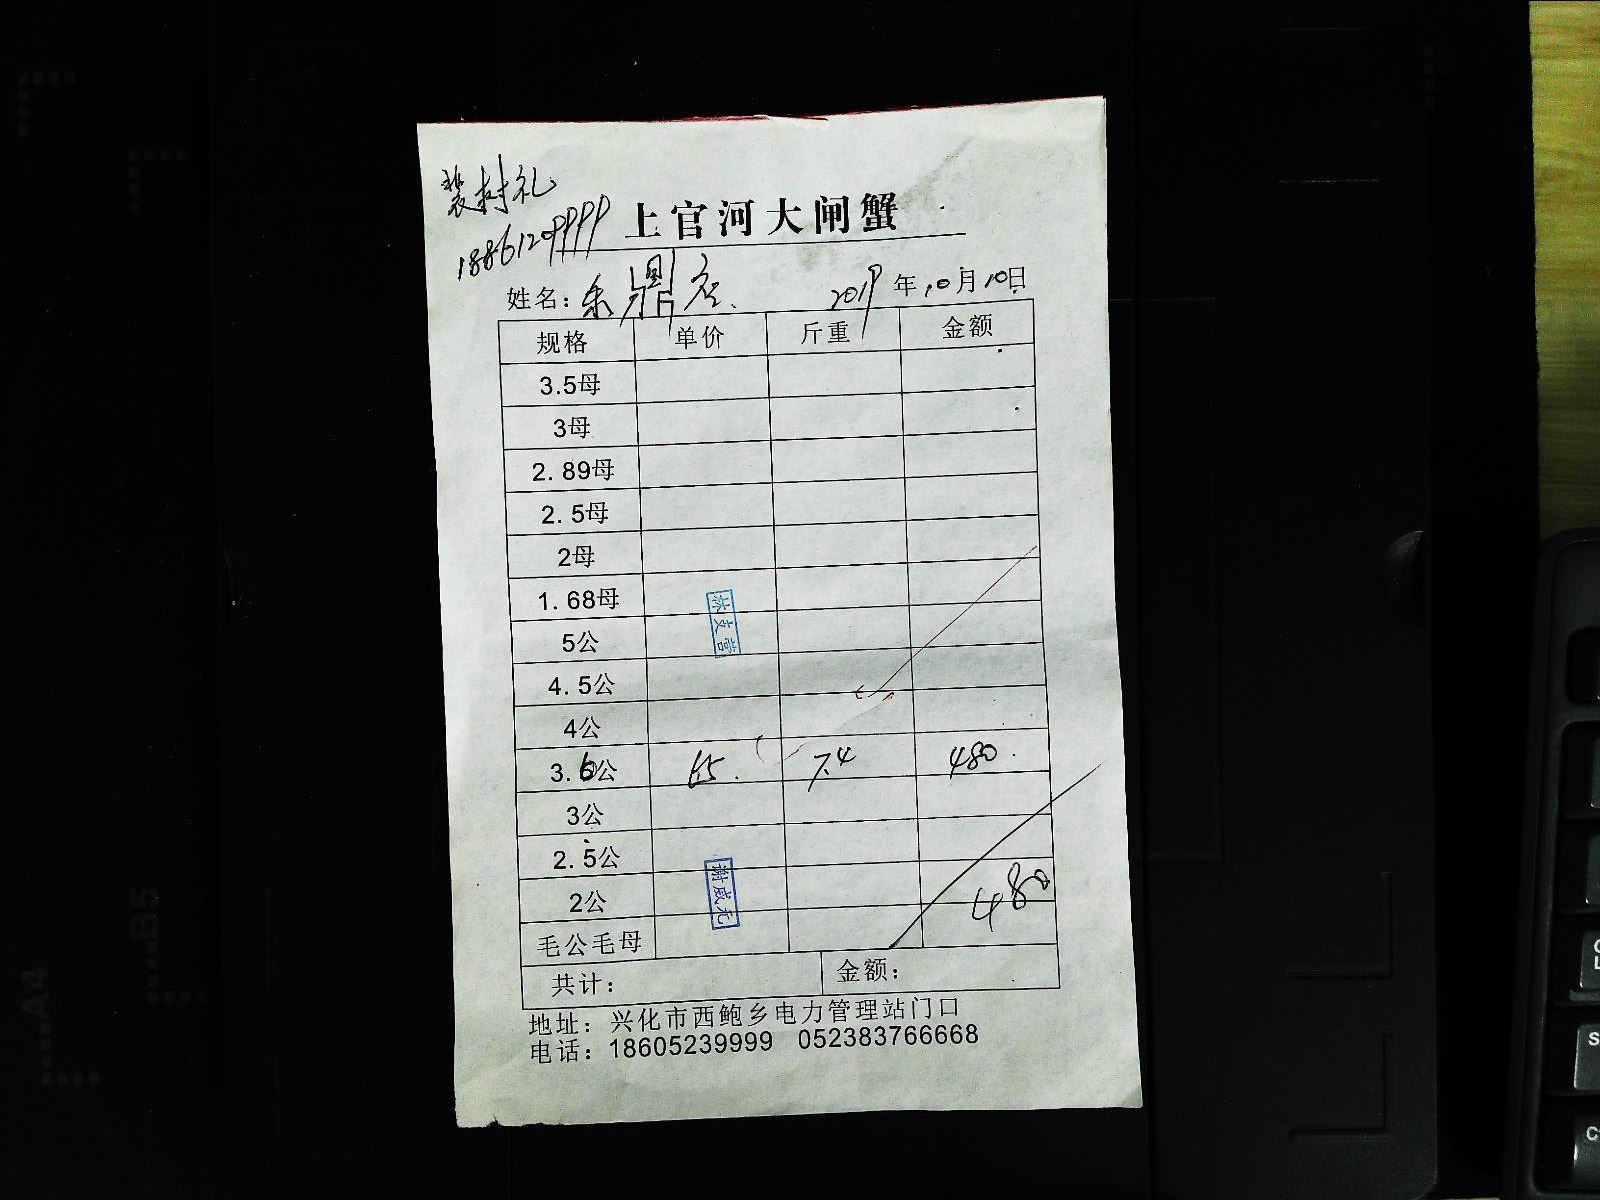 裴树礼
18861209999
上官河大闸蟹
姓名：禾鼎农 2019年10月10日
规格 单价 斤重 金额
3.5母
3母
2.89母
2.5母
2母
1.68母
5公
4.5公
4公
3.6公 65 7.4 480
3公
2.5公
谢成元
2公
480
毛公毛母
共计： 金额：
地址：兴化市西鲍乡电力管理站门口
电话：18605239999 052383766668
A4
B5